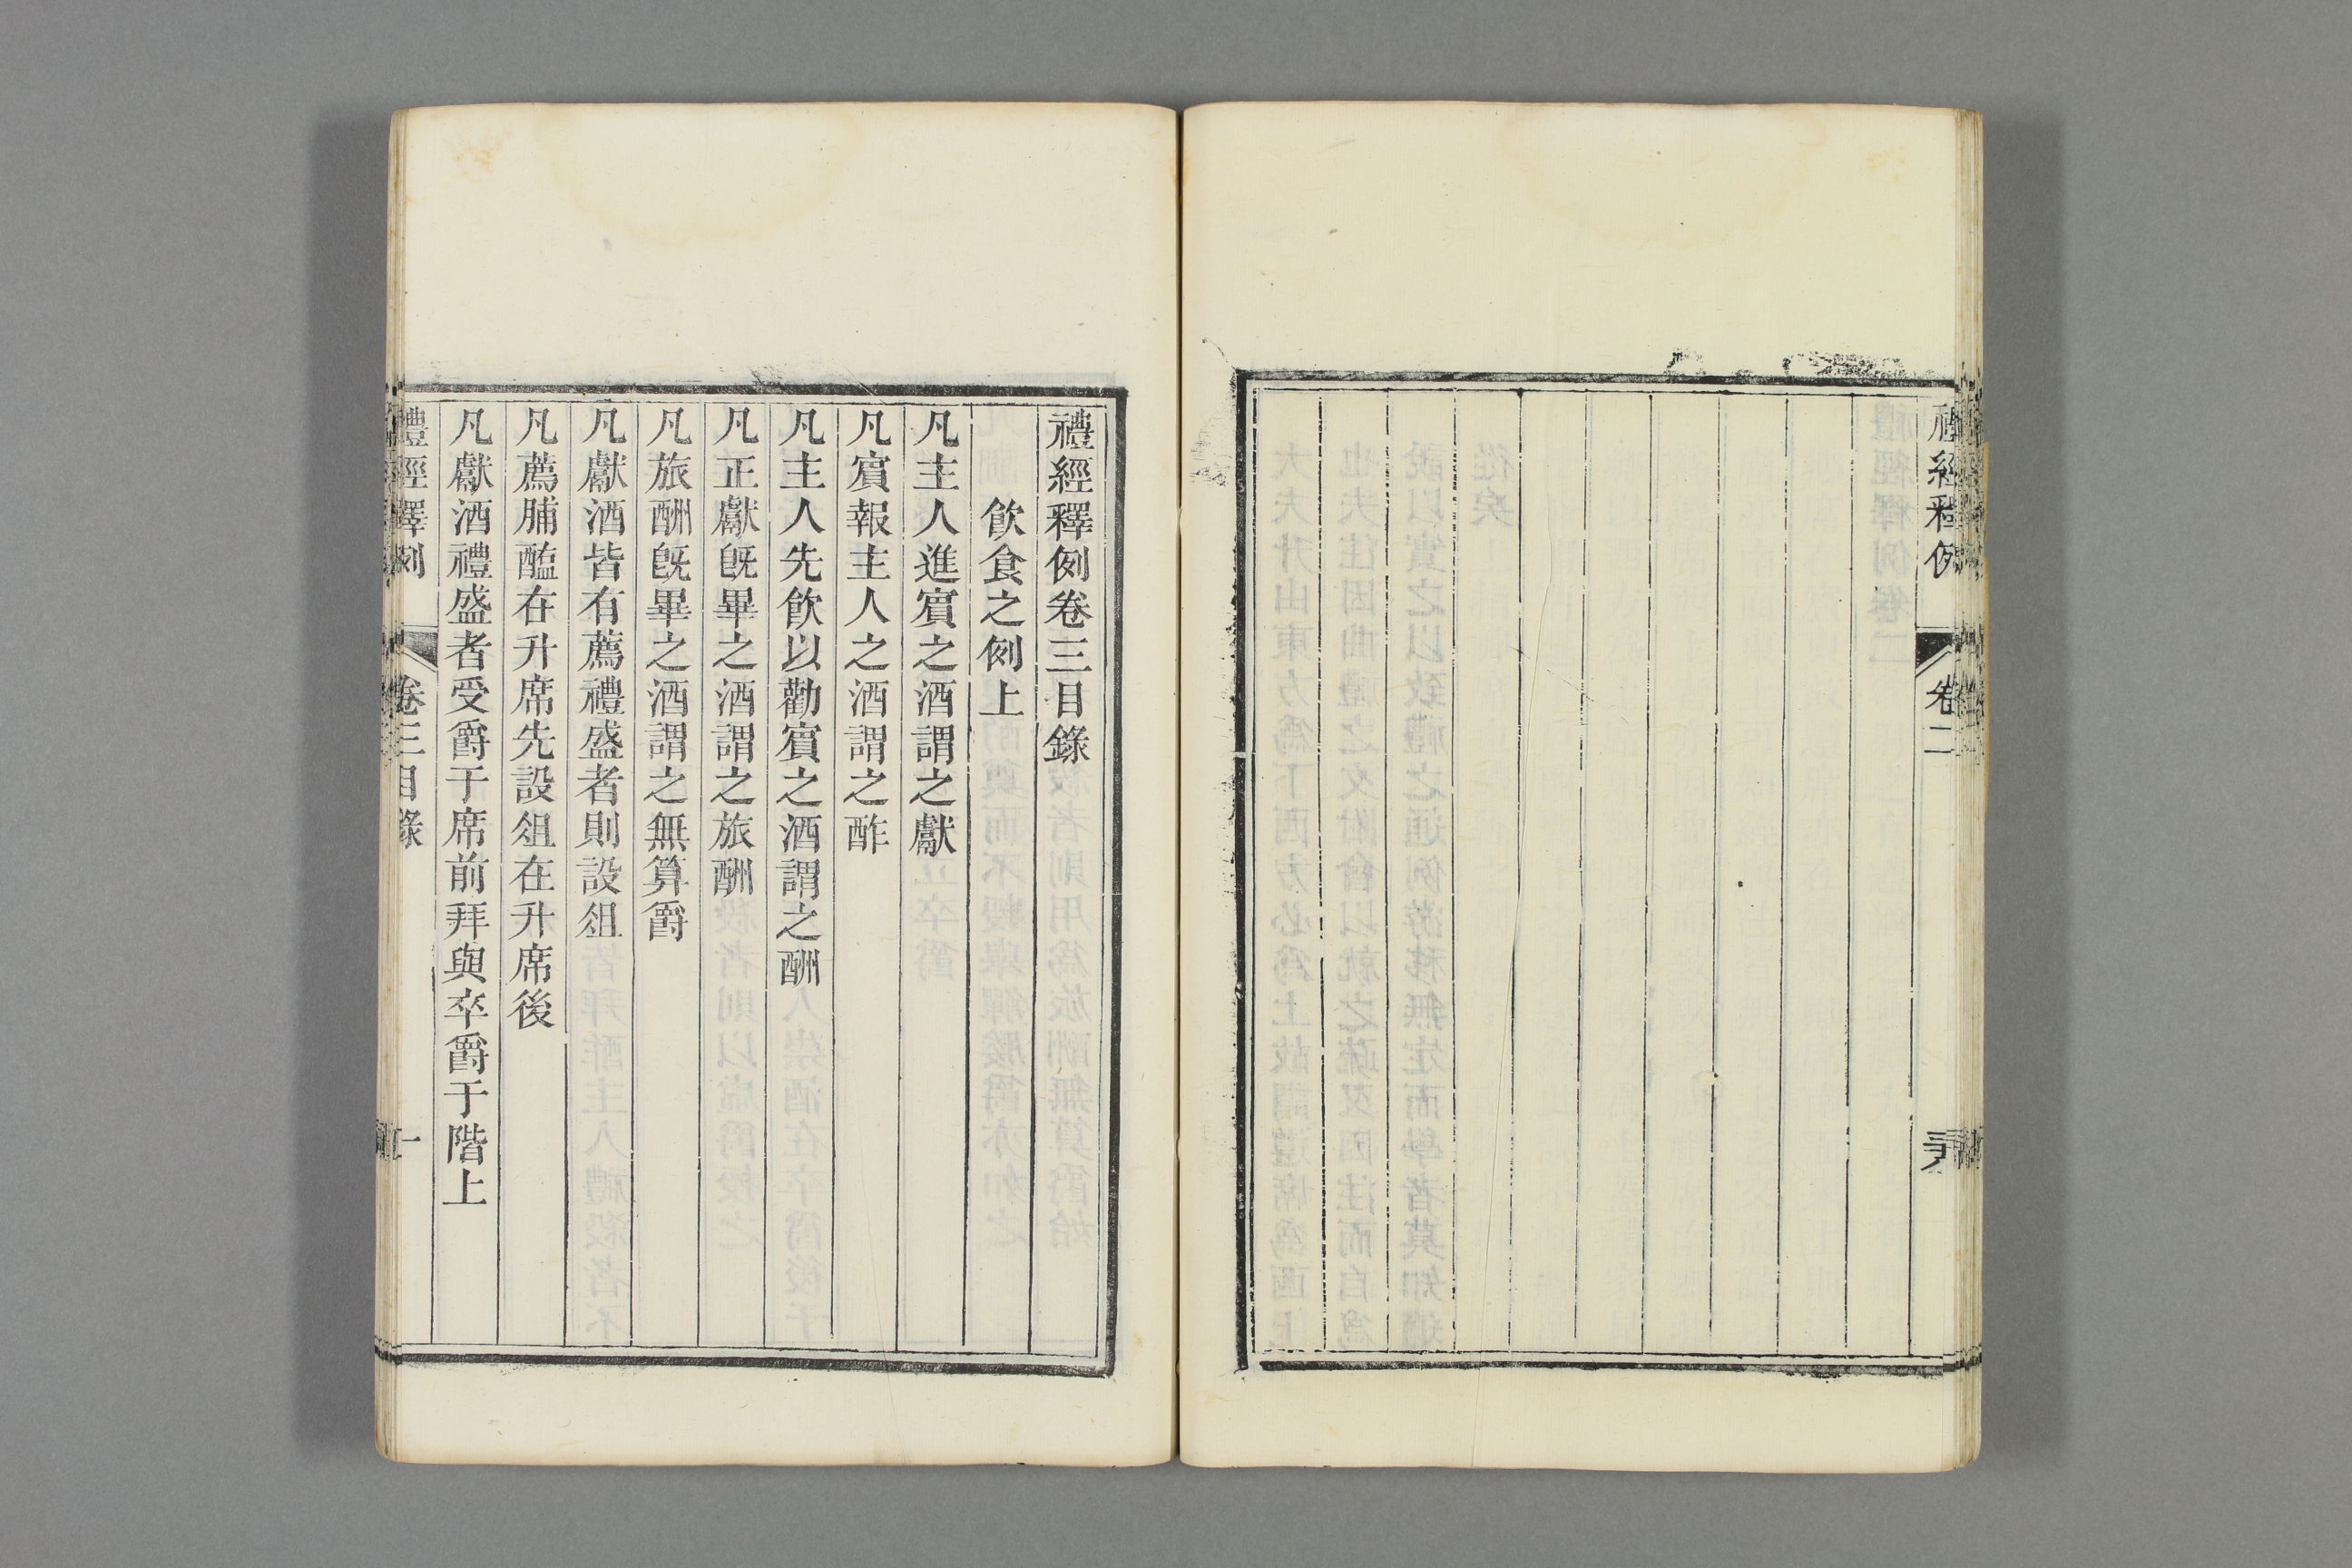 禮經釋例
卷二
禮經釋例卷三目錄
飮食之例上
凡主人進賔之酒謂之獻
凡賔報主人之酒謂之酢
凡主人先飮以勸賔之酒謂之酬
凡正獻旣畢之酒謂之旅酬
凡旅酬旣畢之酒謂之無算爵
凡獻酒皆有薦禮盛者則設俎
凡薦脯醢在升席先設俎在升席後
凡獻酒禮盛者受爵于席前拜與卒爵于階上
禮經釋例
卷三目錄
一